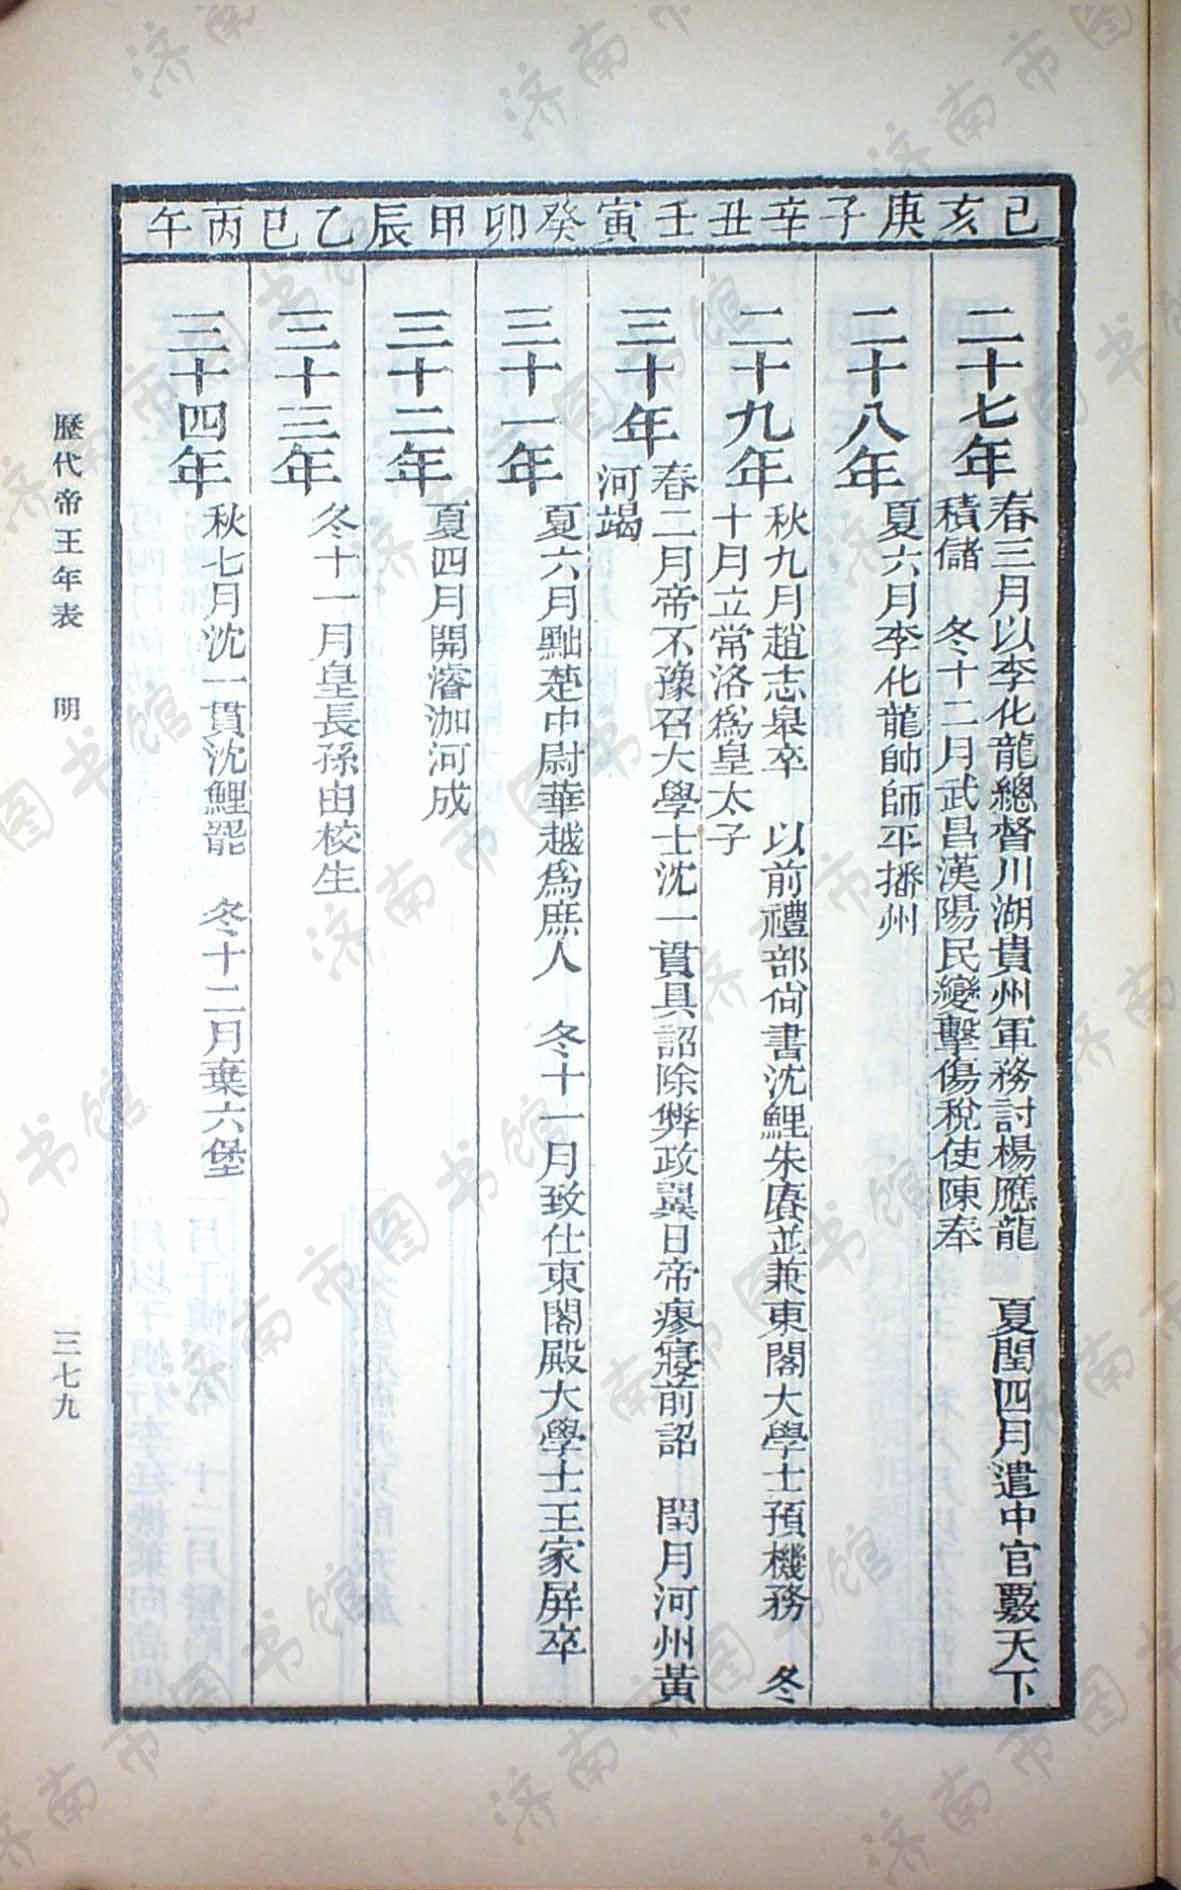 己亥 庚子 辛丑 壬寅 癸卯 甲辰 乙巳 丙午
二十七年
春三月以李化龍總督川湖貴州軍務討楊應龍 夏閏四月遣中官覈天下
積儲 冬十二月武昌漢陽民變擊傷稅使陳奉
二十八年
夏六月李化龍帥師平播州
二十九年
秋九月趙志皋卒 以前禮部尙書沈鯉朱賡並兼東閣大學士預機務 冬
十月立常洛爲皇太子
三十年
春二月帝不豫召大學士沈一貫具詔除弊政翼日帝瘳寢前詔 閏月河州黃
河竭
三十一年
夏六月黜楚中尉華越爲庶人 冬十一月致仕東閣殿大學士王家屏卒
三十二年
夏四月開濬泇河成
三十三年
冬十一月皇長孫由校生
三十四年
秋七月沈一貫沈鯉罷 冬十二月棄六堡
歷代帝王年表 明
三七九
济南市图书馆